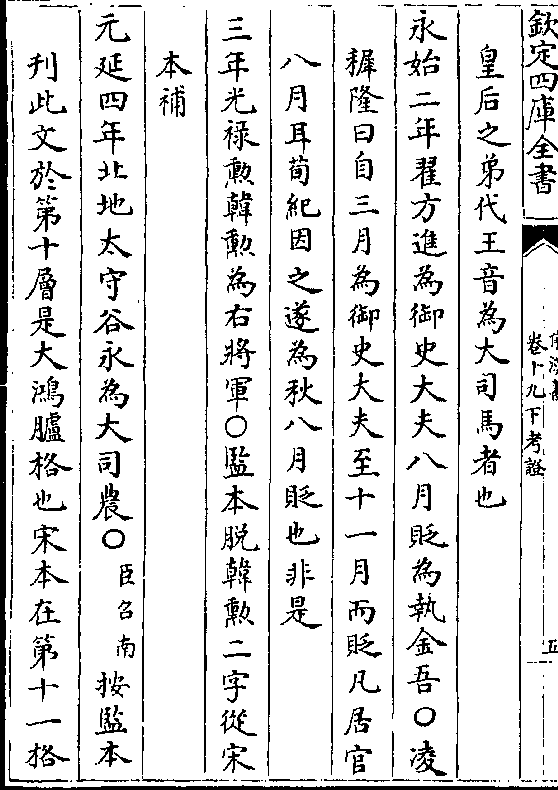 欽定四庫全書
卷十九下考證
五
皇后之弟代王音為大司馬者也
永始二年翟方進為御史大夫八月貶為執金吾○凌
稺隆曰自三月為御史大夫至十一月而貶凡居官
八月耳荀紀因之遂為秋八月貶也非是
三年光祿勲韓勲為右將軍○監本脱韓勲二字從宋
本補
元延四年北地太守谷永為大司農○臣召南按監本
刋此文於第十層是大鴻臚格也宋本在第十一格